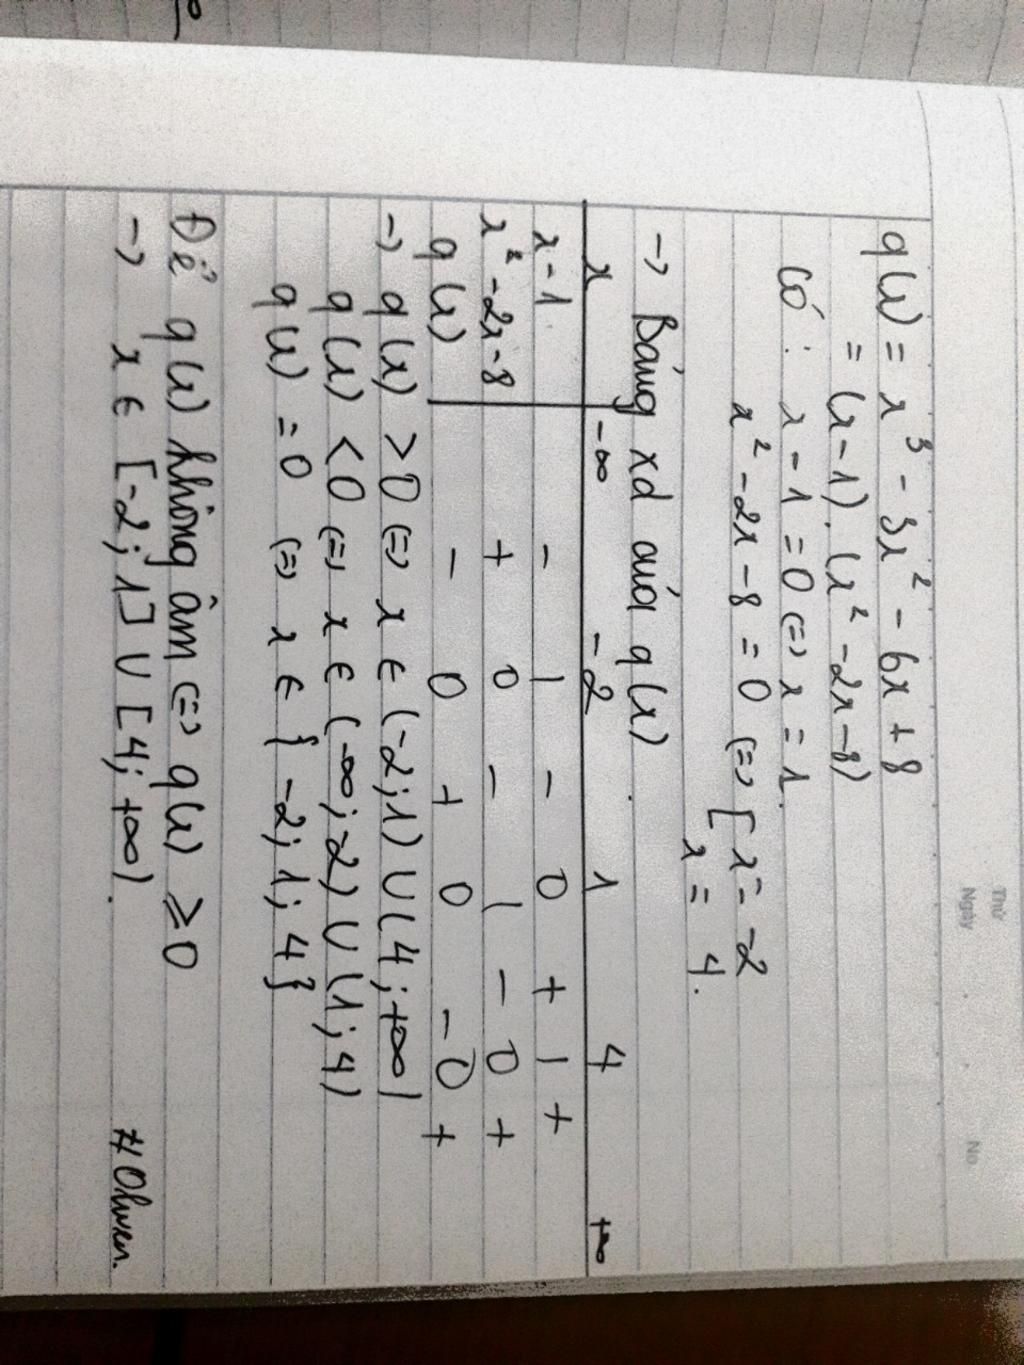 Thứ
Ngày
No
q(x) = x³ - 3x² - 6x + 8
= (x-1).(x² - 2x - 8)
Có: x - 1 = 0 (=) x = 1.
x² - 2x - 8 = 0 (=) [ x = -2
x = 4.
→ Bảng xd của q(x).
x -∞ -2 1 4 +∞
x - 1 - | - 0 + | +
x² - 2x - 8 + 0 - | - 0 +
q(x) - 0 + 0 - 0 +
→ q(x) > 0 (=) x ∈ (-2; 1) ∪ (4; +∞)
q(x) < 0 (=) x ∈ (-∞; -2) ∪ (1; 4)
q(x) = 0 (=) x ∈ { -2; 1; 4}
Để q(x) không âm (=) q(x) ≥ 0
→ x ∈ [-2; 1] ∪ [4; +∞).
#Olwen.